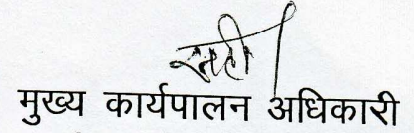 सही
मुख्य कार्यपालन अधिकारी